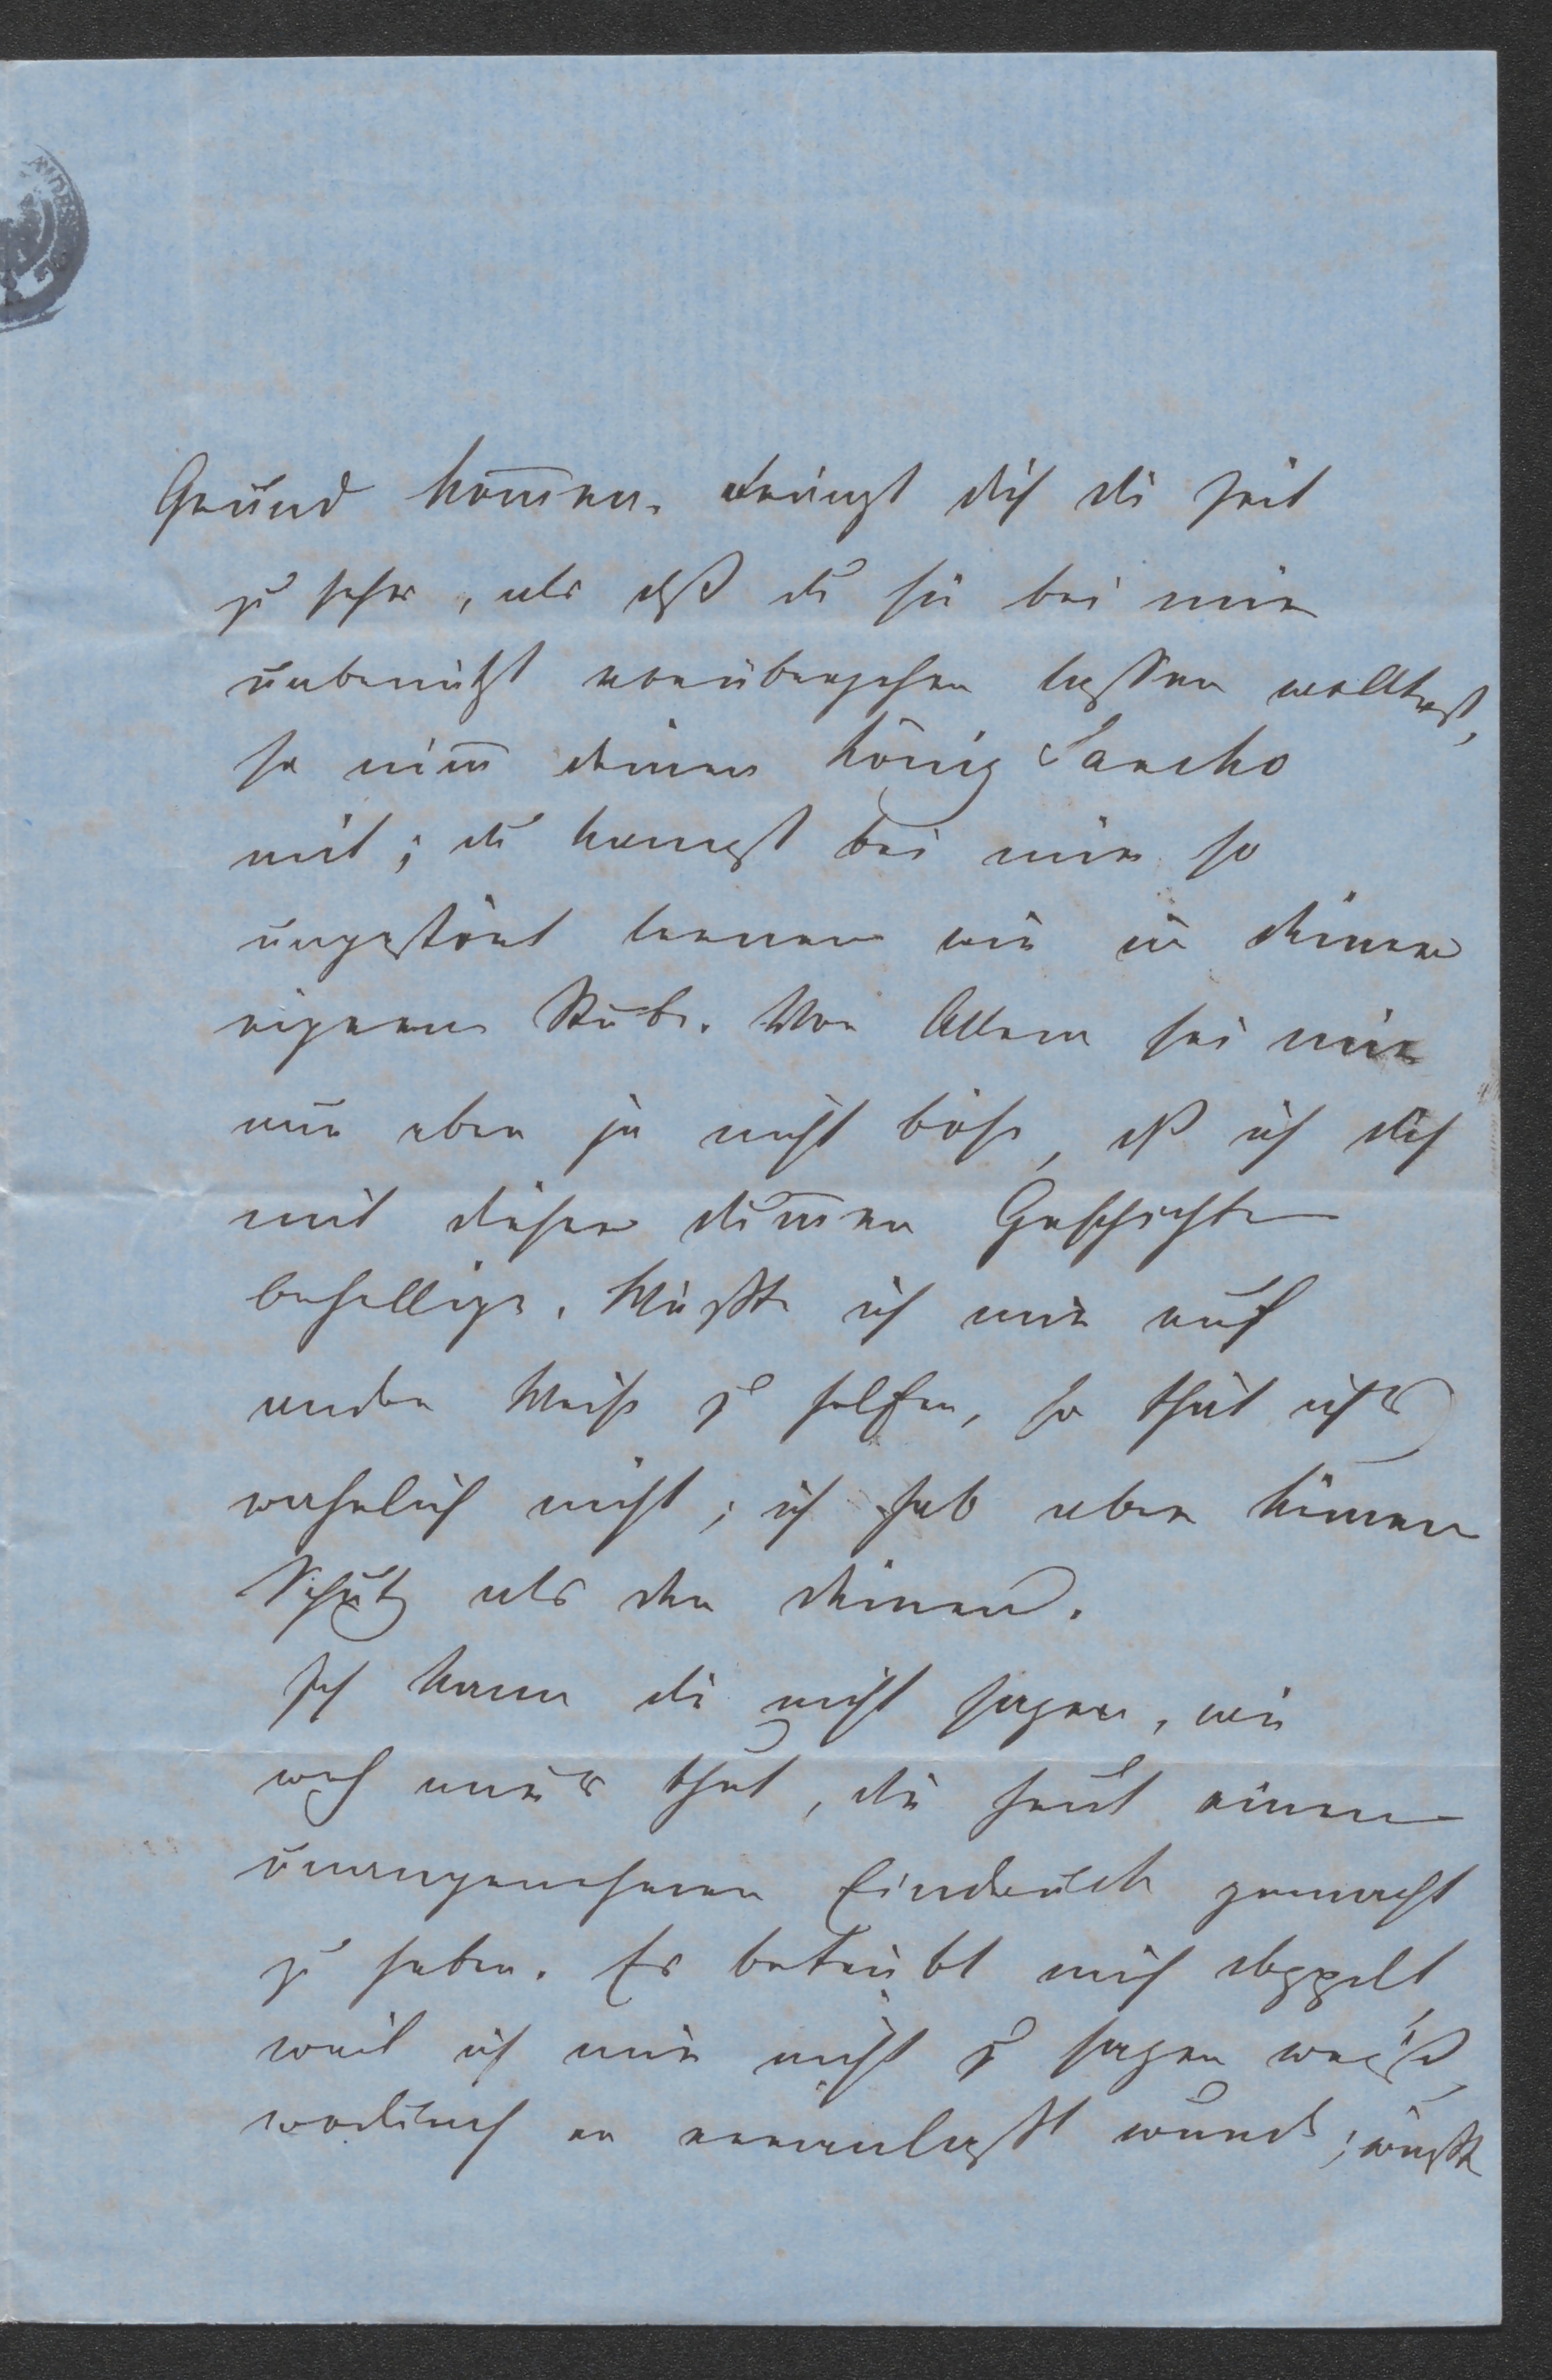 Grund kom̅en. Drängt dich die Zeit
zu sehr, als daß du sie bei mir
unbenützt vorübergehen lassen wolltest,
so nim̅ deinen König Sancho
mit; du kannst bei mir so
ungestört lernen wie in deiner
eigenen Stube. Vor Allem sei mir
nur aber ja nicht böse, daß ich dich
mit dieser dum̅en Geschichte
behellige. Wüßte ich mir auf
andre Weise zu helfen, so thät ichs
wahrlich nicht; ich hab aber keinen
Schutz als den deinen.
Ich kann dir nicht sagen, wie
weh mirs thut, dir heut einen
unangenehmen Eindruck gemacht
zu haben. Es betrübt mich doppelt,
weil ich mir nicht zu sagen weiß,
wodurch er veranlaßt wurde; wüßte